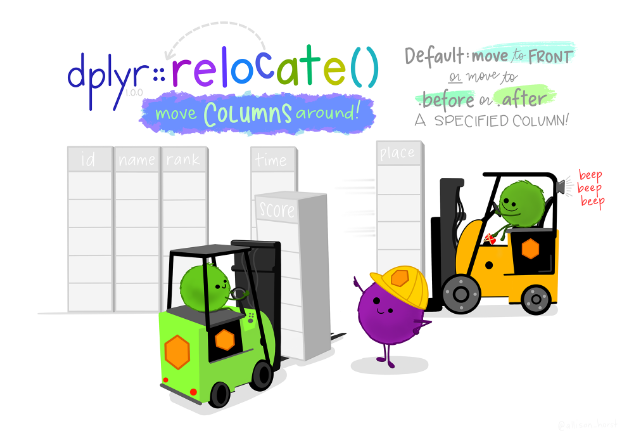 dplyr::relocate()
1.0.0
move COLUMNS around!
Default: move to FRONT
or move to
.before or .after
A SPECIFIED COLUMN!
id name rank time place
score
beep
beep
beep